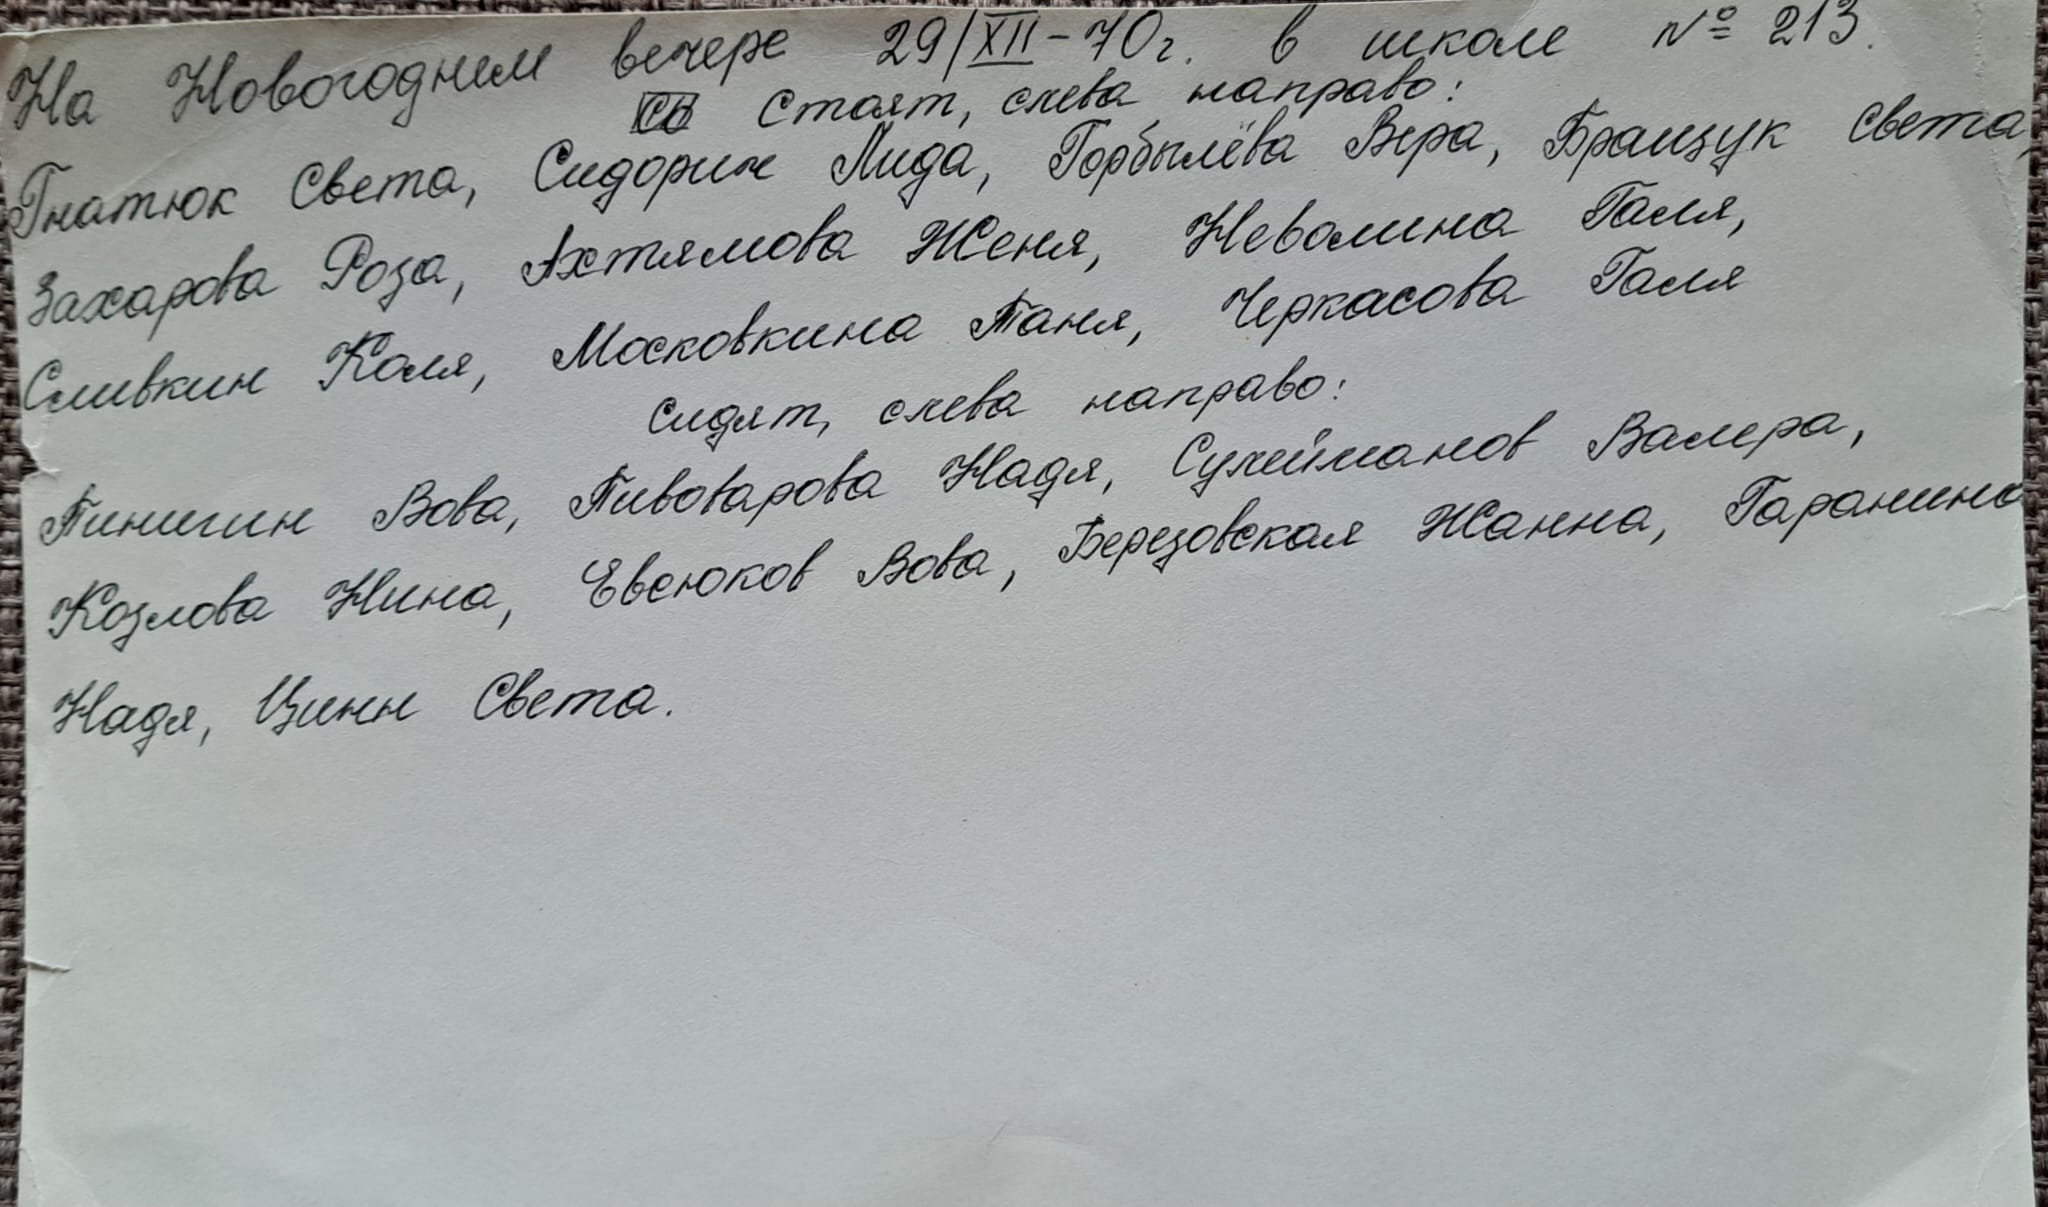 На Новогоднем вечере 29/XII-70г. в школе № 213.
Стоят, слева направо:
Гнатюк Света, Сидорик Лида, Горбылёва Вера, Бращук Света,
Захарова Роза, Ахтямова Женя, Неволина Галя,
Сливкин Коля, Московкина Таня, Черкасова Галя
Сидят, слева направо:
Пинигин Вова, Пивоварова Надя, Сулейманов Валера,
Козлова Нина, Евсюков Вова, Березовская Жанна, Гаранина
Надя, Цинн Света.